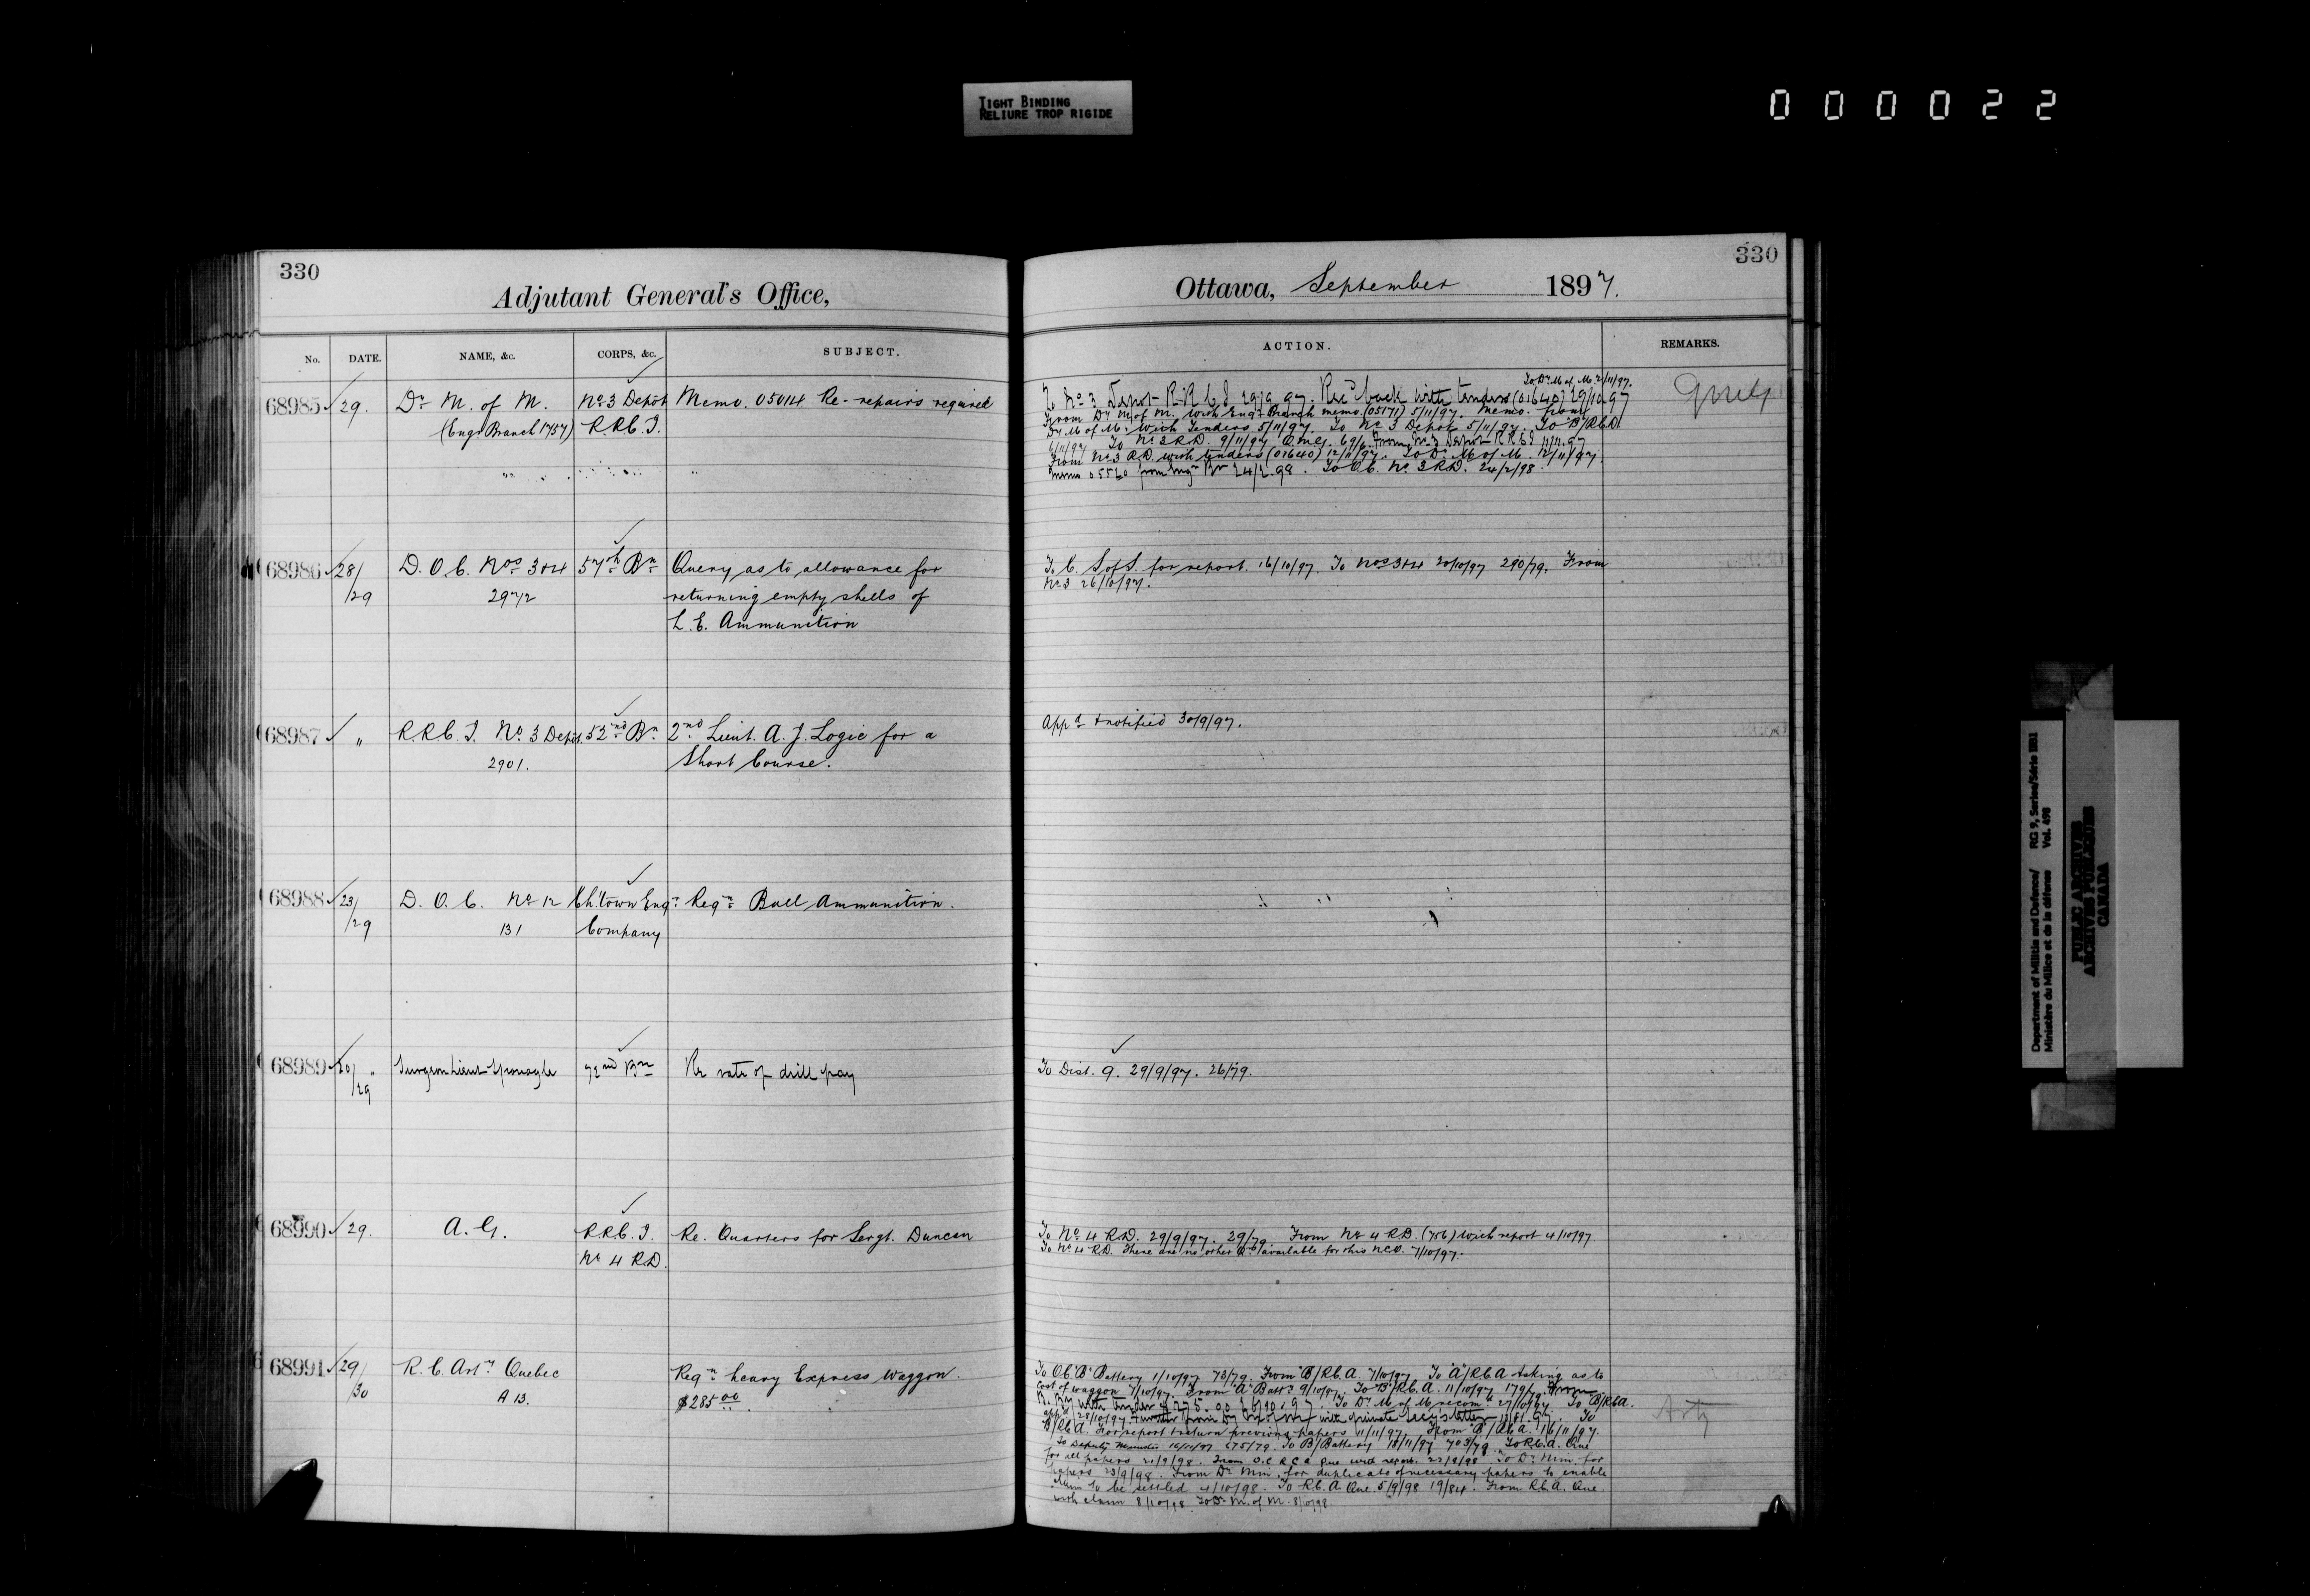 TIGHT BINDING
RELIURE TROP RIGIDE
000022
330
Adjutant General's Office,
No. DATE. NAME, &c. CORPS, &c. SUBJECT.
68985 29. Dr M. of M. No 3 Depôt Memo. 05014 Re-repairs required
(Engr Branch 1757) R.R.C.I.
68986 28/ D.O.C. Nos 3&4 57th Bn Query as to allowance for
/29 297/2 returning empty shells of
L.E. Ammunition
68987 " R.R.C.I. No 3 Depôt. 52nd Bn 2nd Lieut. A. J. Logie for a
2901. Short Course.
68988 23/ D.O.C. No 12 Ch'town Engr Reqn Ball Ammunition.
/29 131 Company
68989 20/ Surgeon Lieut Sponagle 72nd Bn Re rate of drill pay
/29
68990 29. A.G. R.R.C.I. Re. Quarters for Sergt. Duncan
No 4 R.D.
68991 29/ R.C. Arty Quebec Reqn heavy Express Waggon.
/30 A 13. $285 00
330
Ottawa, September 1897.
ACTION. REMARKS.
To Dr M of M. 2/11/97.
To No 3 Depot R.R.C.I 29/9/97. Recd back with tenders (01640) 29/10/97
From Dr M. of M. with Engr Branch memo (05171) 5/11/97. Memo. from
Dr M of M. with Tenders 5/11/97. To No 3 Depôt 5/11/97. To B/R.C.A.
6/11/97 To No 3 R.D. 9/11/97 From No 3 Depot R.R.C.I 11/11.97
From No 3 R.D. with tenders (01640) 12/11/97. To Dr M of M 12/11/97.
Memo 05520 from 24/2.98. To O.C. No 3 R.D. 24/2/98.
To C. S of S. for report. 16/10/97. To Nos 3&4 20/10/97 290/79. From
No 3 26/10/97.
Appd & notified 30/9/97.
To Dist. 9. 29/9/97. 26/79.
To No 4 R.D. 29/9/97. 29/79 From No 4 R.D. (756) with report 4/10/97
To No 4 R.D. There are no other Qrs available for this N.C.O. 7/10/97.
To O.C. "B" Battery 1/10/97 73/79. From "B"/R.C.A. 7/10/97 To "A"/R.C.A asking as to
cost of waggon 7/10/97. From "A" Batty 9/10/97. To "B"/R.C.A. 11/10/97 179/79.
with tender $275.00 26/10.97. To Dr M. of M recomd 27/10/97 To B/R.C.A.
appd 28/10/97 from with private letter To
B/R.C.A. For report & return previous papers 11/11/97 From "B"/R.C.A. 16/11/97.
To Deputy Minister 16/11/97 675/79. To B/Battery 18/11/97 703/79 To R.C.A. Que
for all papers 21/9/98. From O.C. R.C.A Que with report. 22/9/98 To Dr Min for
papers 23/9/98. From Dr Min. for duplicate of necessary papers to enable
claim to be settled 4/10/98. To R.C.A Que. 5/9/98 19/84. From R.C.A. Que
with claim 8/10/98 To Dr M. of M. 8/10/98
Arty
Department of Militia and Defence/ RG 9, Series/Série IIB1
Ministère du Milice et de la défence Vol. 498
PUBLIC ARCHIVES
ARCHIVES PUBLIQUES
CANADA